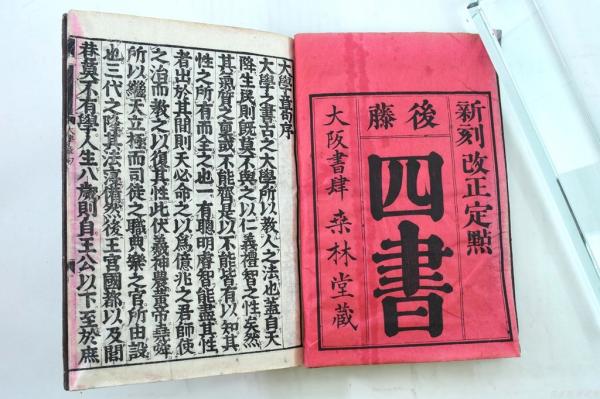 新刻改正定點
後藤
四書
大阪書肆 桒林堂藏
大學章句序
大學之書古之大學所以教人之法也蓋自天
降生民則既莫不與之以仁義禮智之性矣然
其氣質之稟或不能齊是以不能皆有以知其
性之所有而全之也一有聰明睿智能盡其性
者出於其間則天必命之以爲億兆之君師使
之治而教之以復其性此伏羲神農黃帝堯舜
所以繼天立極而司徒之職典樂之官所由設
也三代之隆其法寖備然後王宮國都以及閭
巷莫不有學人生八歲則自王公以下至於庶